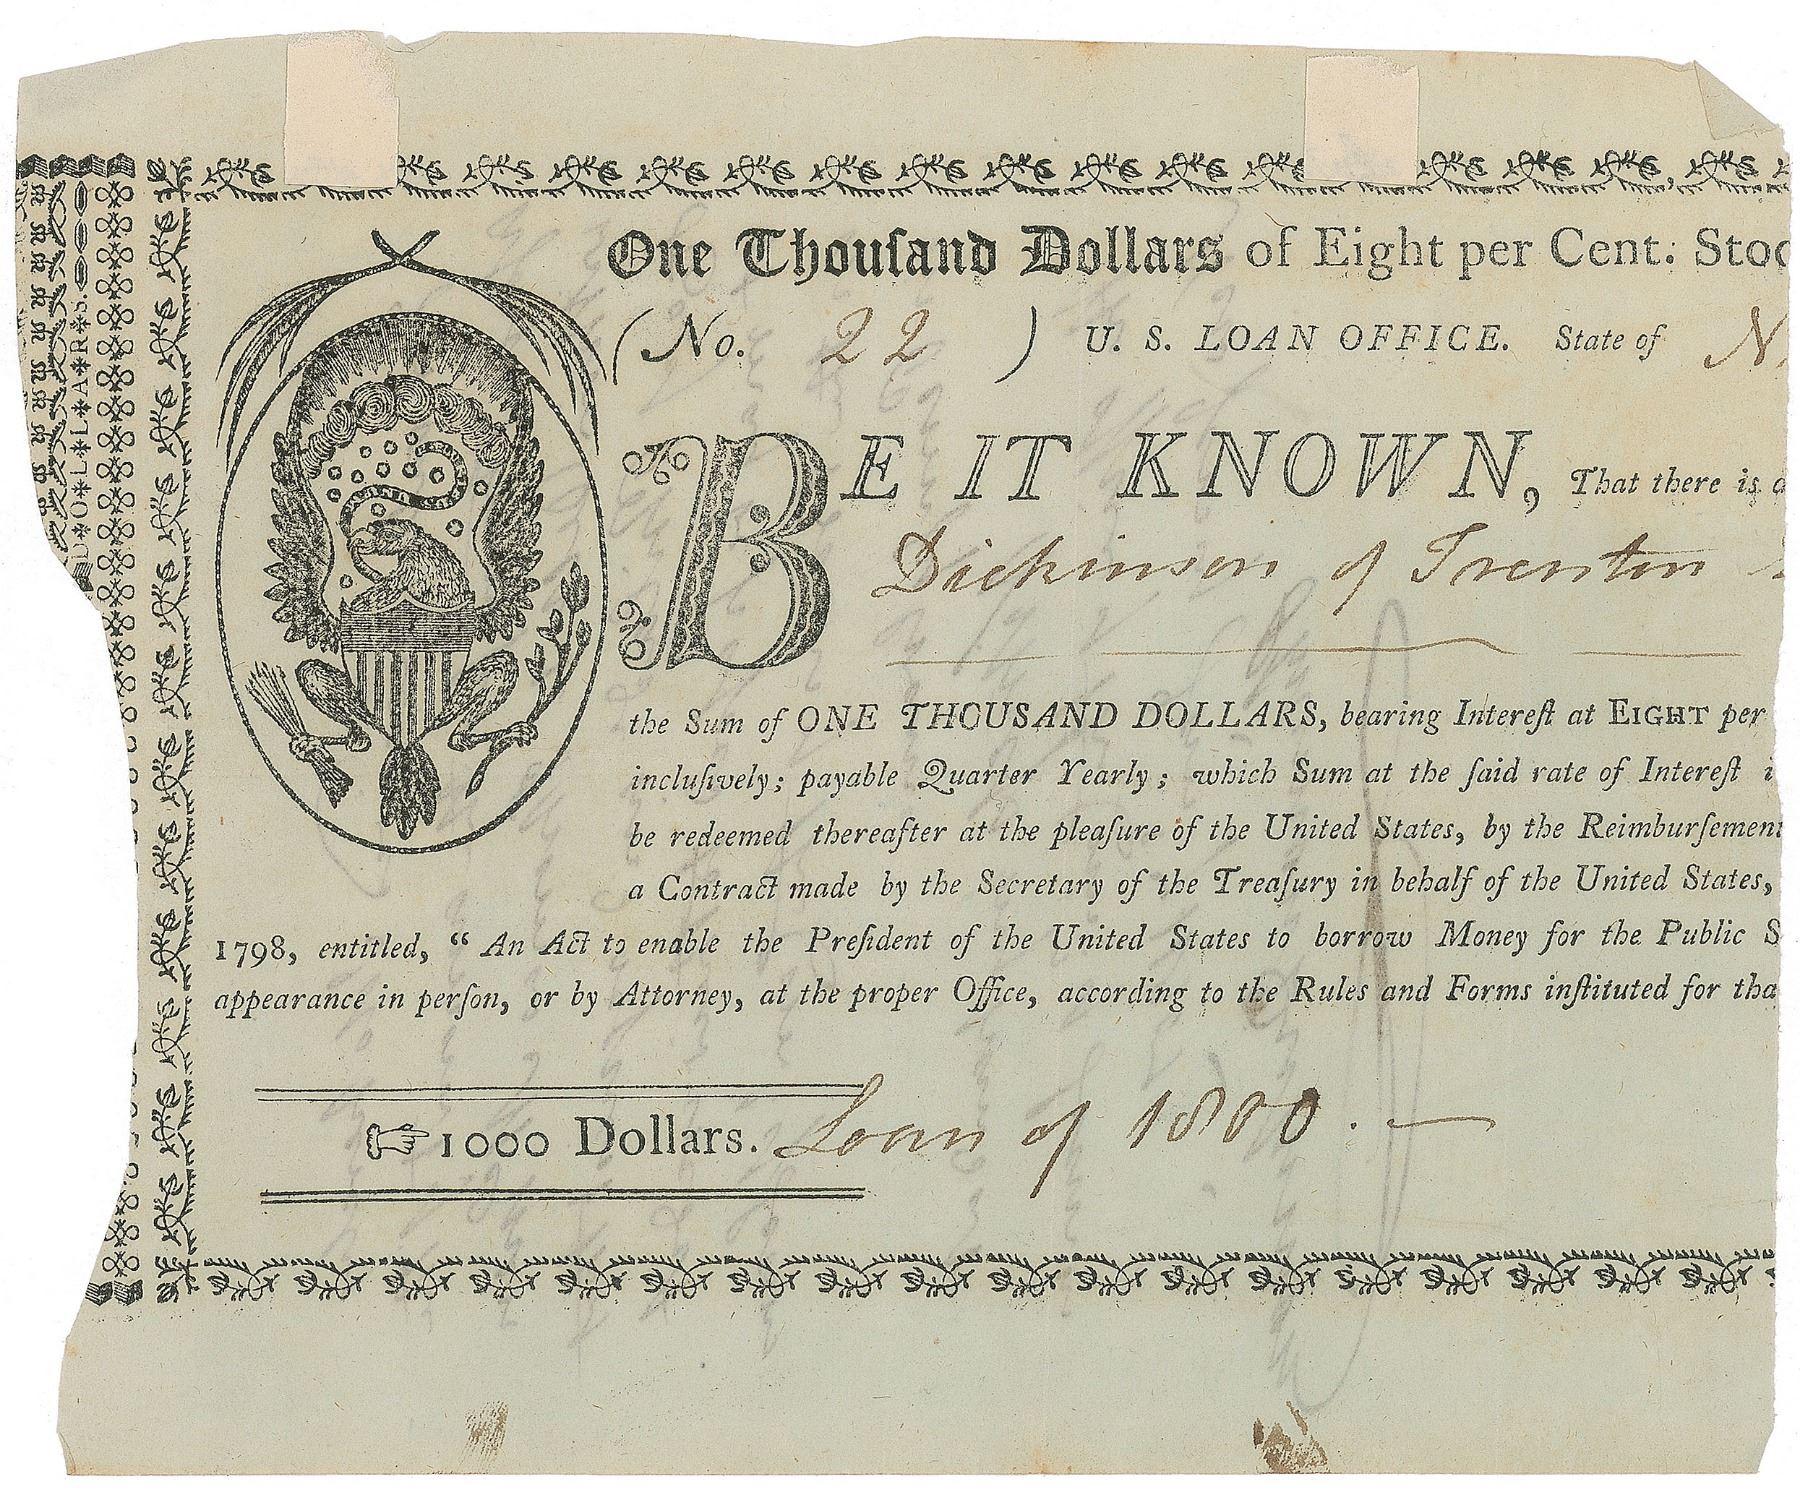 One Thouſand Dollars of Eight per Cent: Stoc
(No. 22) U. S. LOAN OFFICE. State of N
BE IT KNOWN, That there is
Dickinson of Trenton
the Sum of ONE THOUSAND DOLLARS, bearing Intereſt at EIGHT per
incluſively; payable Quarter Yearly; which Sum at the ſaid rate of Intereſt i
be redeemed thereafter at the pleaſure of the United States, by the Reimburſement
a Contract made by the Secretary of the Treaſury in behalf of the United States,
1798, entitled, “ An Act to enable the Preſident of the United States to borrow Money for the Public S
appearance in perſon, or by Attorney, at the proper Office, according to the Rules and Forms inſtituted for tha
☞1000 Dollars. Loan of 1800. —
D*O*L*L*A*R*S.